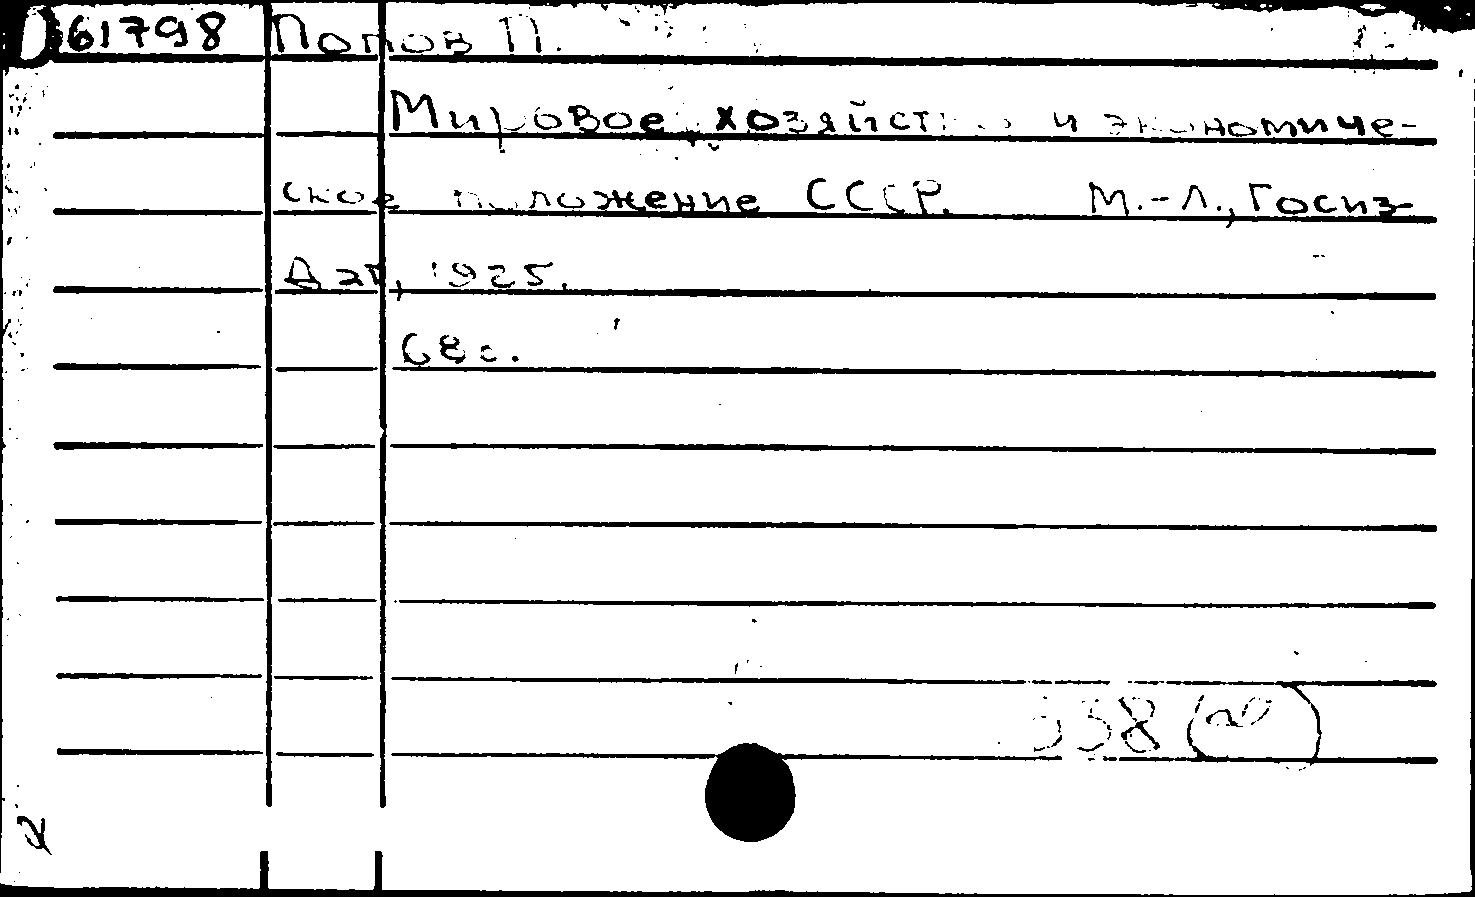 D61798 Попов П.
Мировое хозяйство и экономиче-
ское положение СССР. М.-Л., Госиз-
дат, 1925.
68 с.
338